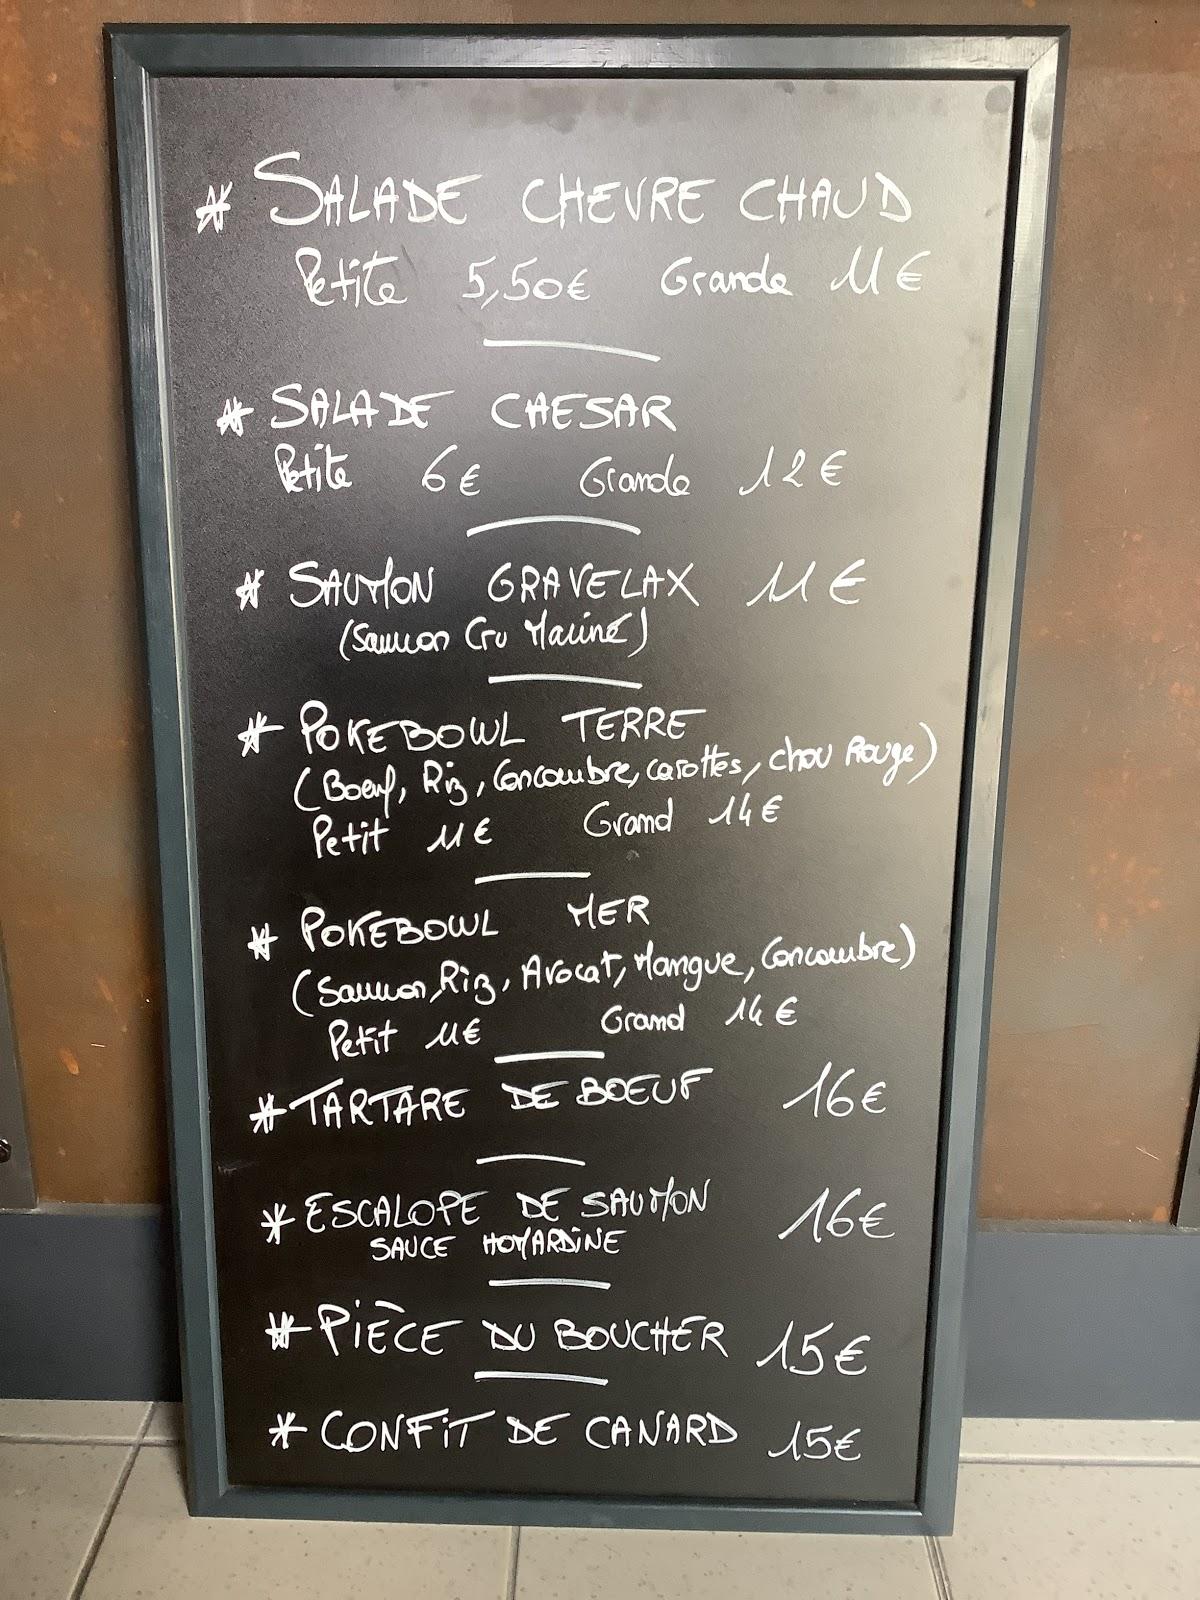 * SALADE CHEVRE CHAUD
Petite 5,50€ Grande 11€
* SALADE CAESAR
Petite 6€ Grande 12€
* SAUMON GRAVELAX 11€
(Saumon Cru Mariné)
* POKEBOWL TERRE
(Boeuf, Riz, Concombre, carottes, chou Rouge)
Petit 11€ Grand 14€
* POKEBOWL MER
(Saumon, Riz, Avocat, Mangue, Concombre)
Petit 11€ Grand 14€
* TARTARE DE BOEUF 16€
* ESCALOPE DE SAUMON 16€
SAUCE HOMARDINE
* PIÈCE DU BOUCHER 15€
* CONFIT DE CANARD 15€